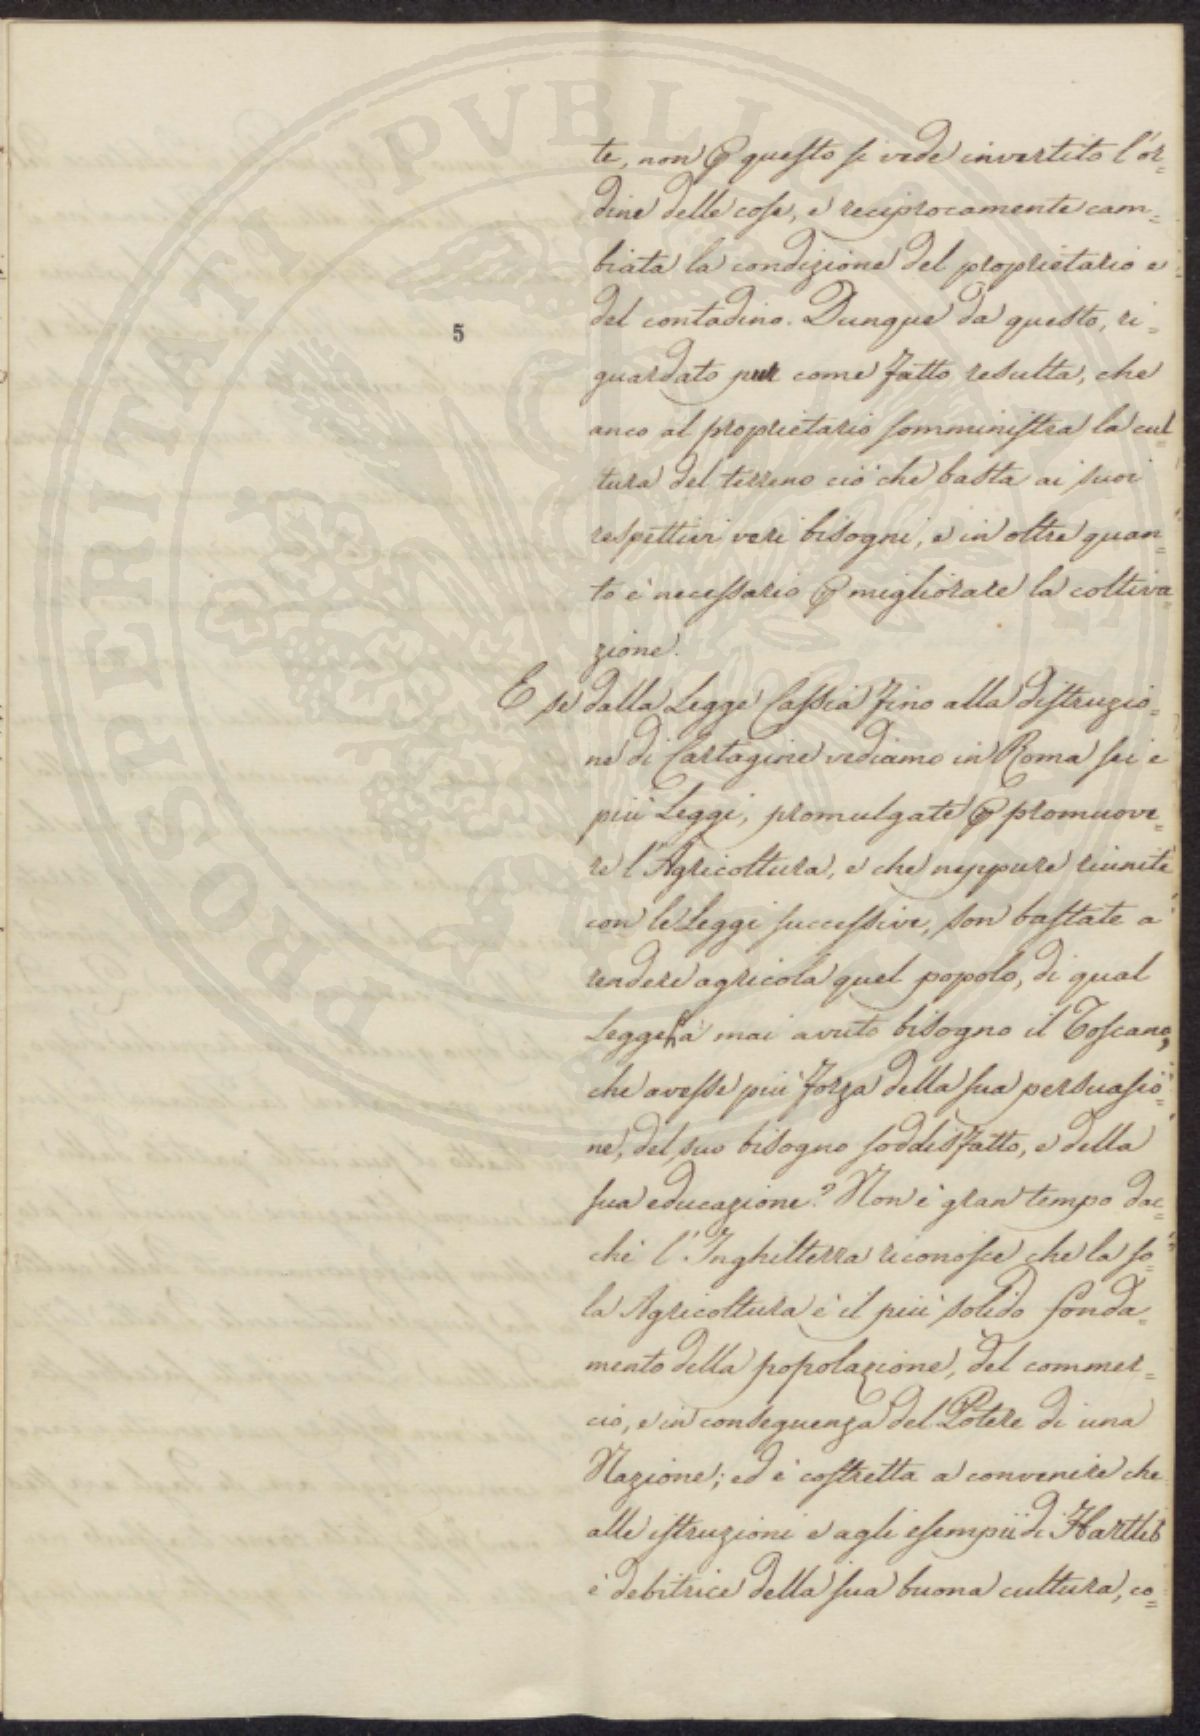 te, non ꝑ questo si vede invertito l'or=
dine delle cose, e reciprocamente cam=
biata la condizione del proprietario e
del contadino. Dunque da questo, ri=
5
guardato pur come fatto resulta, che
anco al proprietario somministra la cul=
tura del terreno ciò che basta ai suoi
respettivi veri bisogni, e in oltre quan=
to è necessario ꝑ migliorare la coltiva=
zione.
E se dalla Legge Cassia fino alla distruzio=
ne di Cartagine vediamo in Roma sei e
più Leggi, promulgate ꝑ promuove=
re l'Agricoltura, e che neppure riunite
con le Leggi successive, son bastate a
rendere agricola quel popolo, di qual
Legge hà mai avuto bisogno il Toscano,
che avesse più forza della sua persuasio=
ne, del suo bisogno soddisfatto, e della
sua educazione? Non è gran tempo dac=
chè l'Inghilterra riconosce che la so=
la Agricoltura è il più solido fonda=
mento della popolazione, del commer=
cio, e in conseguenza del Potere di una
Nazione; ed è costretta a convenire che
alle istruzioni e agli esempii di Hartlib
è debitrice della sua buona cultura, co=
PROSPERITATI PVBLICAE